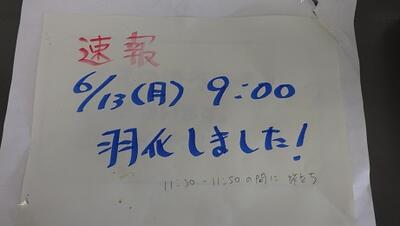 速報
6/13(月) 9:00
羽化しました!
11:30-11:50の間に